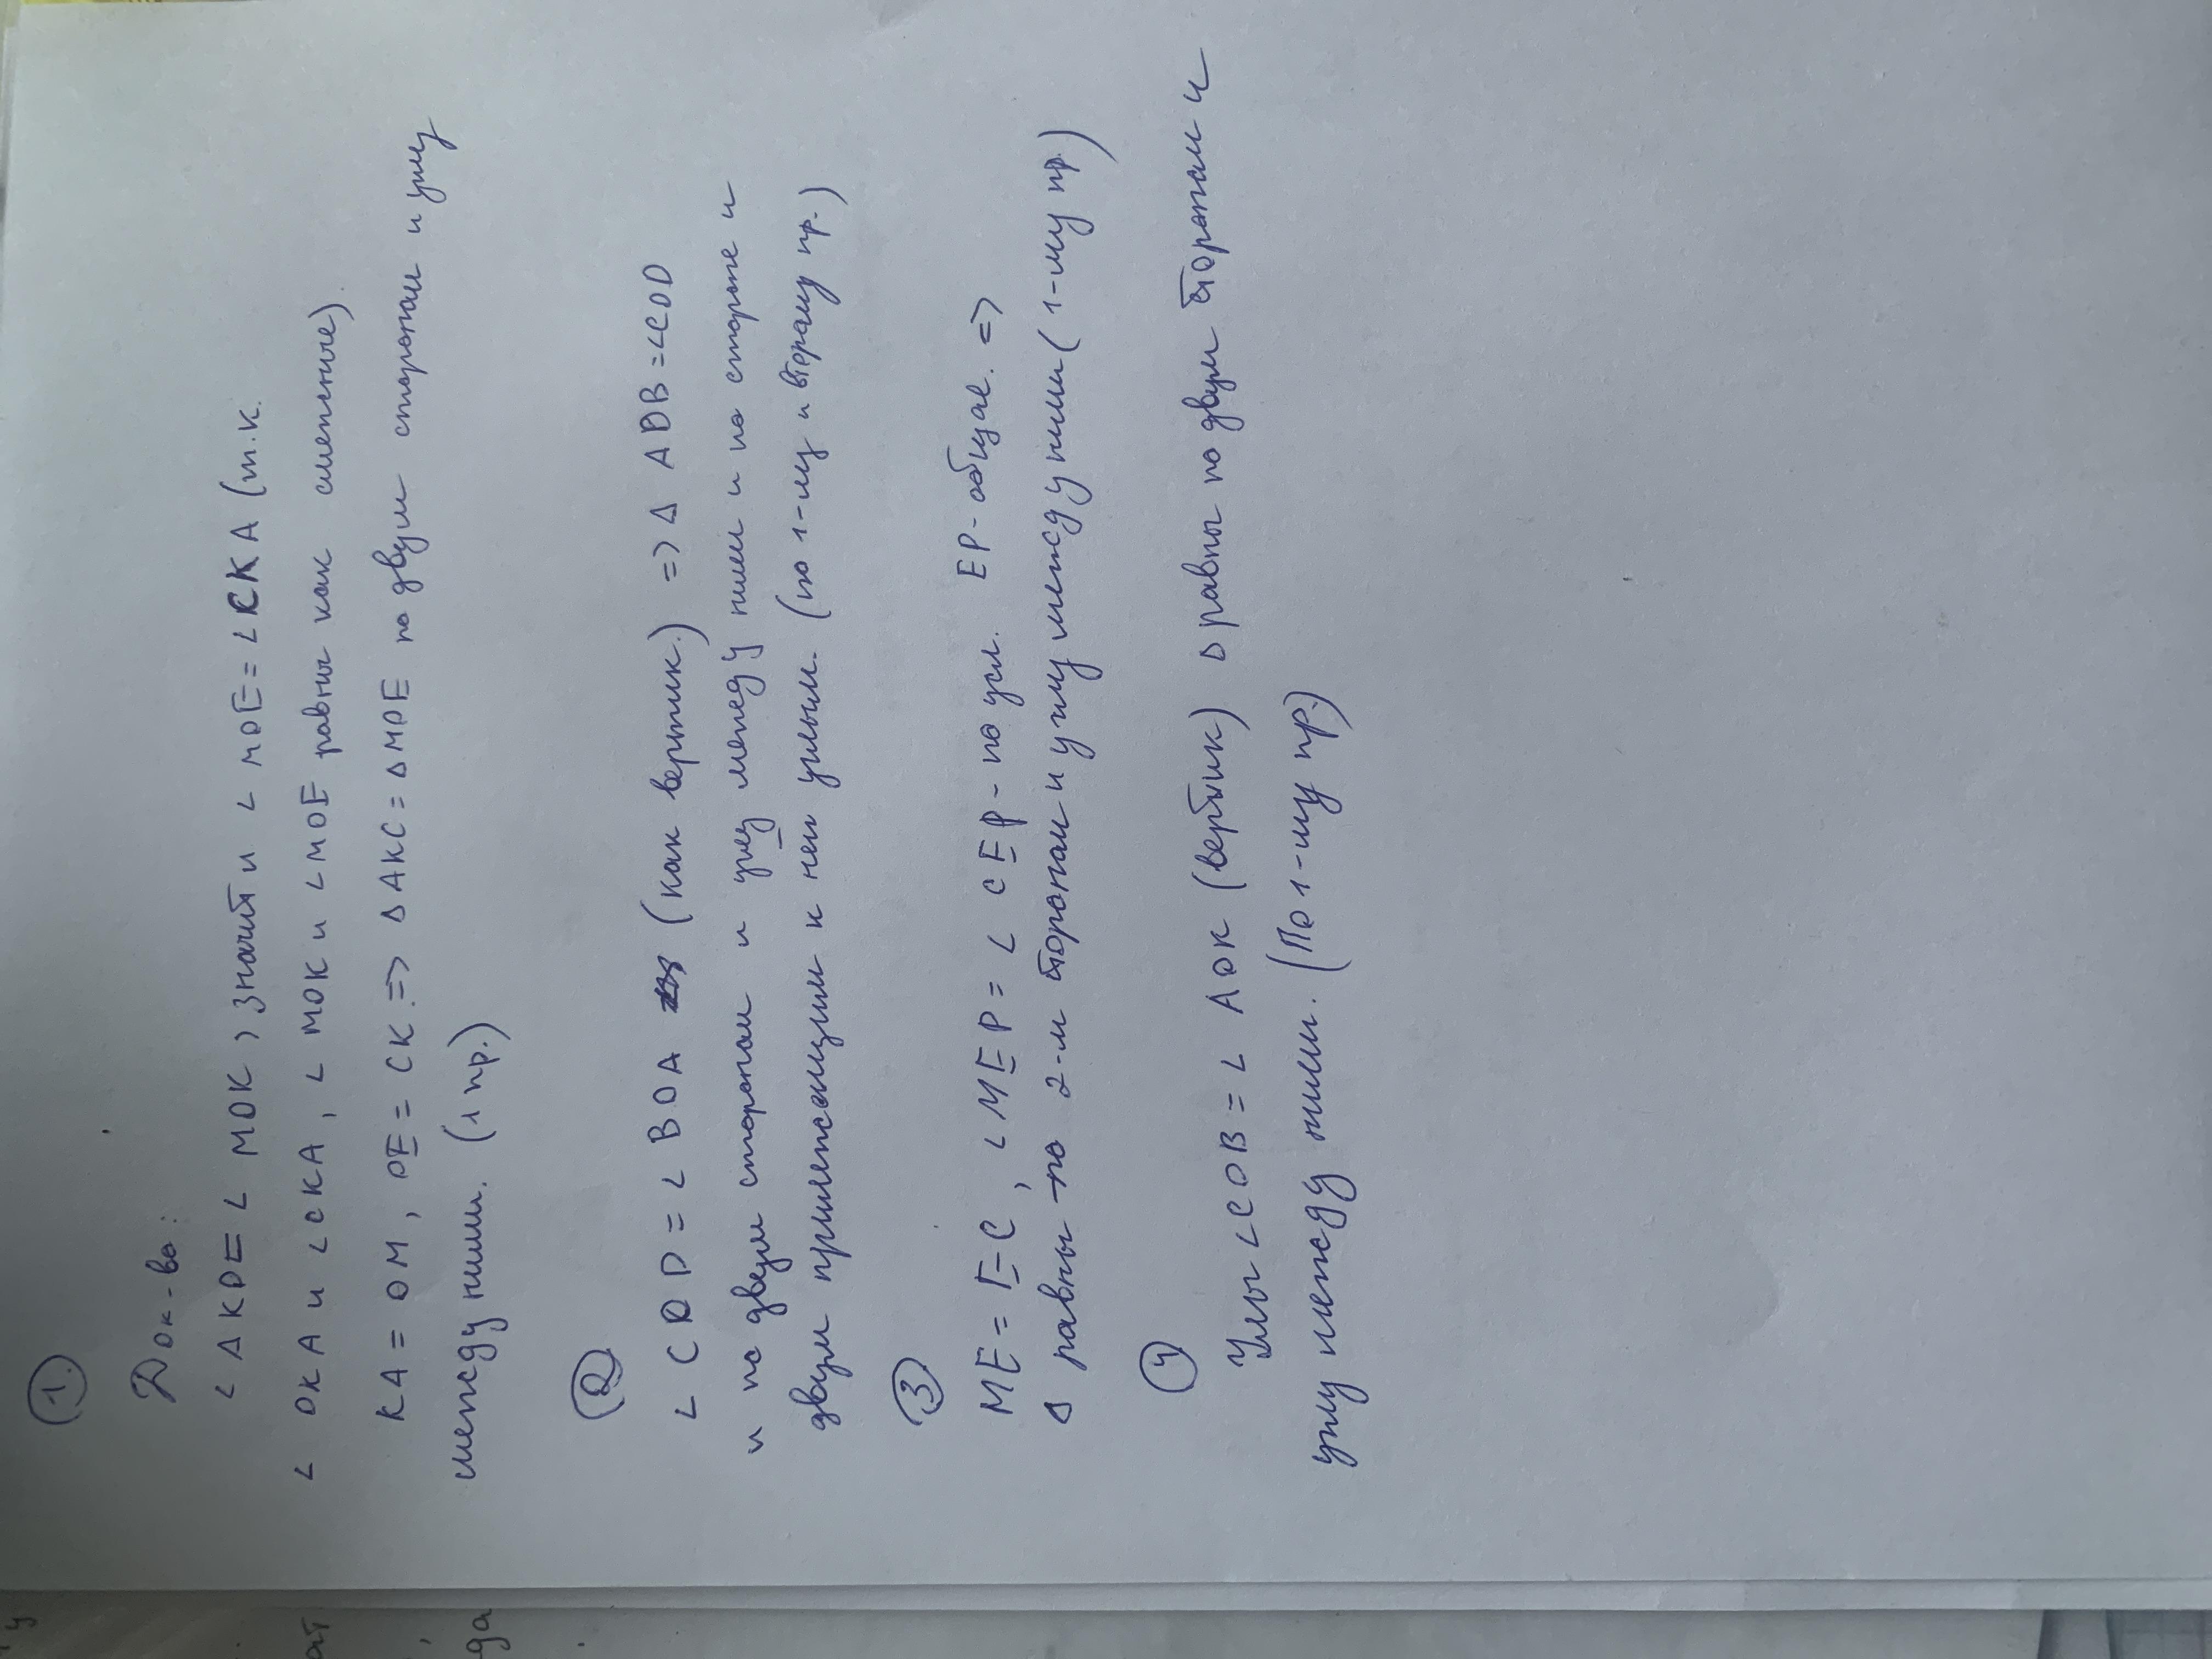 1.
Док-во:
∠ AKO = ∠ MOK, значит и ∠ MOE = ∠CKA (т.к.
∠ OKA и ∠CKA, ∠ MOK и ∠MOE равны как смежные).
KA = OM, OE = CK => Δ AKC = Δ MOE по двум сторонам и углу
между ними. (1 пр.)
2
∠ COD = ∠ BOA (как вертик.) => Δ AOB = ∠COD
и по двум сторонам и углу между ними и по стороне и
двум прилежащим к ней углым. (по 1-му и второму пр.)
3
ME = EC, ∠MEP = ∠ CEP - по усл. EP - общая. =>
Δ равны по 2-м сторонам и углу между ними (1-му пр.)
4
Углы ∠COB = ∠ AOK (вертик) Δ равны по двум сторонам и
углу между ними. (По 1-му пр.)
у
ат
,
да